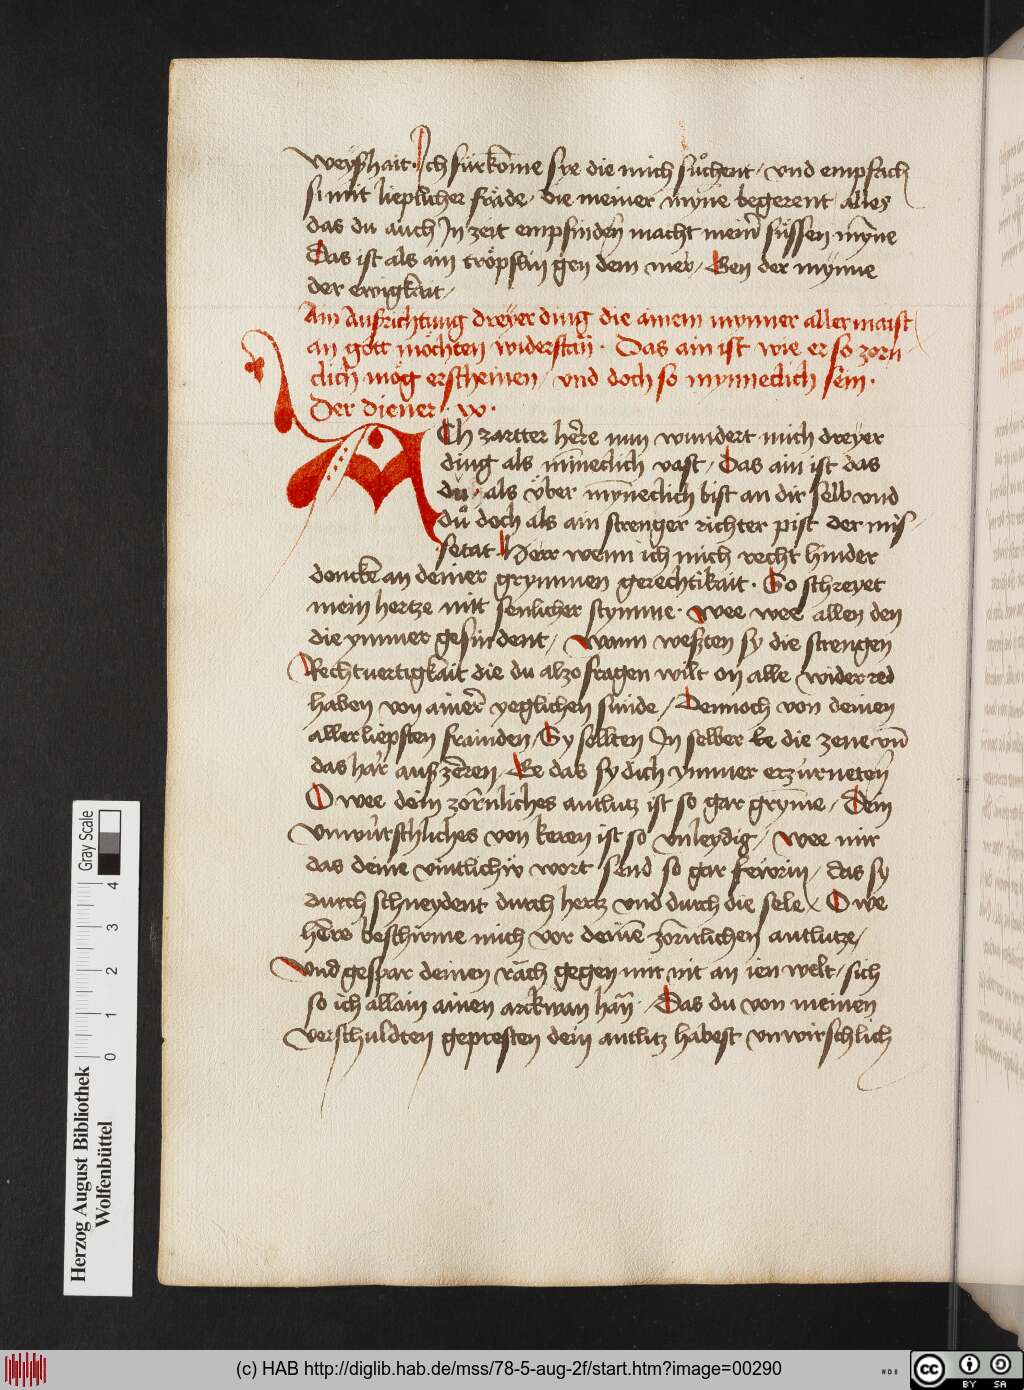 weyßhait. Ich fürkom̄e sye die mich sůchent / vnd empfach
si mit lieplicher fräde / die meiner myne begerent / alles
das du auch In zeit empfinden macht mein̄ süssen mÿne
Das ist als ain tröpflin gen dem mer / Gen der mynne
der ewigkait /
Am Aufrichtung dreyer ding die ainem mynner aller maist
an gott möchten widerstan̄ . Das ain ist wie er so zorn
clich mög erscheinen / vnd doch so mynneclich sein .
Der diener . xv .
ACh zartter her̄e nun wundert mich dreyer
ding als min̄eclich vast / Das ain ist das
du / als über mynneclich bist an dir selb vnd
dů doch als ain strenger richter pist der mis-
setat. Herr wenn ich mich recht hinder
dencke an deiner grymmen gerechtikait . So schreyet
mein hertze mit senlicher stymme . wee wee allen den
die ymmer gesündent / Wann weßten sy die strengen
Rechtuertigkait die du alzo fragen wilt on alle wider red
haben von ainer̄ yeglichen sünde / Dennoch von deinen
allerliepsten frainden / Sy sollten In selber Ee die zene vn̄
das har auß zeren / Ee das sy dich ymmer erzürneten̄
O wee dein zornliches antlutz ist so gar gryme / Dein
vnwürschliches von keren ist so vnleydig / wee mir
das deine vintlichiv wort send so gar fewrin / das sy
durch schneydent durch hertz vnd durch die sele / O we
her̄e beschirme mich vor deinē zornlichen antlutze /
vnd gespar deinen räch gegen mir nit an ien welt / sich
so ich allain ainen arckwan han̄ . / Das du von meinen
verschuldten gepresten dein antlitz habest vnwirschlich
Gray Scale
0 1 2 3 4
Herzog August Bibliothek
Wolfenbüttel
(c) HAB http://diglib.hab.de/mss/78-5-aug-2f/start.htm?image=00290
cc BY SA